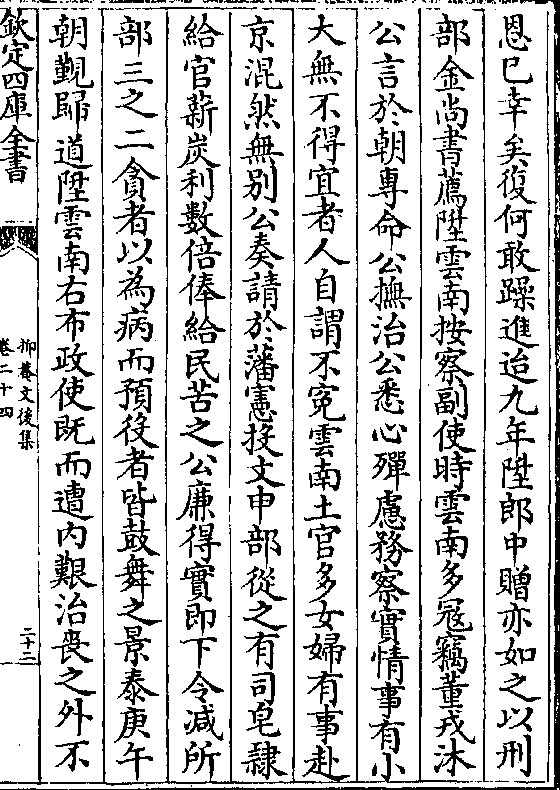 恩已幸矣復何敢躁進迨九年陞郎中贈亦如之以刑
部金尚書薦陞雲南按察副使時雲南多冦竊董戎沐
公言於朝專命公撫治公悉心殫慮務察實情事有小
大無不得宜者人自謂不寃雲南土官多女婦有事赴
京混然無别公奏請於藩憲投文申部從之有司皂隸
給官薪炭利數倍俸給民苦之公廉得實即下令減所
部三之二貪者以為病而預役者皆鼓舞之景泰庚午
朝覲歸道陞雲南右布政使既而遭内艱治喪之外不
欽定四庫全書
抑菴文後集
卷二十四
二十二